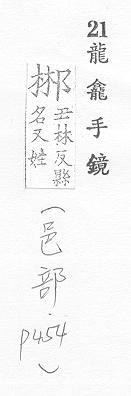 21 龍龕手鏡
郴
丑林反縣
名又姓
(邑部.p454)